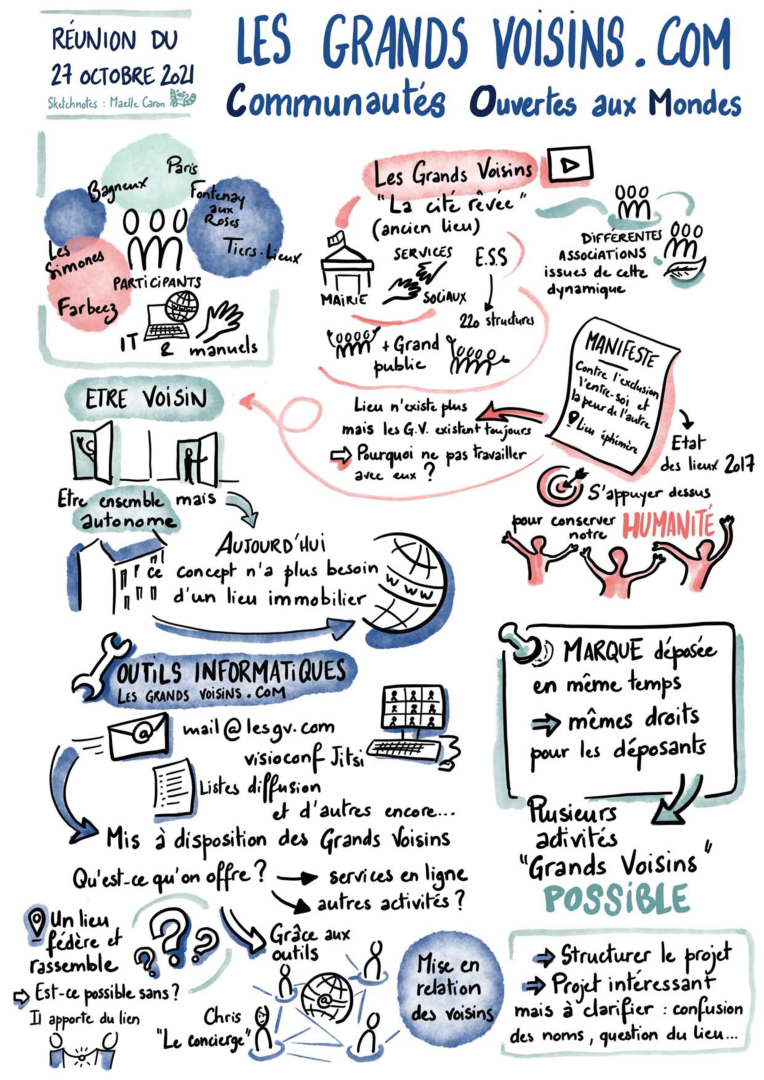 RÉUNION DU
27 OCTOBRE 2021
Sketchnotes : Maelle Caron
LES GRANDS VOISINS.COM
Communautés Ouvertes aux Mondes
Paris
Bagneux
Fontenay
aux
Roses
Tiers-Lieux
Les
Simones
Farbeez
PARTICIPANTS
IT & manuels
Les Grands Voisins
"La cité rêvée"
(ancien lieu)
MAIRIE
SERVICES
SOCIAUX
E.S.S
220 structures
+ Grand
public
DIFFÉRENTES
ASSOCIATIONS
issues de cette
dynamique
MANIFESTE
Contre l'exclusion
l'entre-soi et
la peur de l'autre
Lieu éphémère
Etat
des lieux 2017
Lieu n'existe plus
mais les G.V. existent toujours
⇨ Pourquoi ne pas travailler
avec eux ?
S'appuyer dessus
pour conserver
notre HUMANITÉ
ETRE VOISIN
Etre ensemble mais
autonome
AUJOURD'HUI
ce concept n'a plus besoin
d'un lieu immobilier
WWW
OUTILS INFORMATIQUES
LES GRANDS VOISINS.COM
@
mail@lesgv.com
visioconf Jitsi
Listes diffusion
et d'autres encore...
Mis à disposition des Grands Voisins
Qu'est-ce qu'on offre ? → services en ligne
→ autres activités ?
MARQUE déposée
en même temps
⇨ mêmes droits
pour les déposants
Plusieurs
activités
"Grands Voisins"
POSSIBLE
Un lieu
fédère et
rassemble
⇨ Est-ce possible sans ?
Il apporte du lien
???
Grâce aux
outils
@
Chris
"Le concierge"
Mise en
relation
des voisins
⇨ Structurer le projet
⇨ Projet intéressant
mais à clarifier : confusion
des noms, question du lieu...